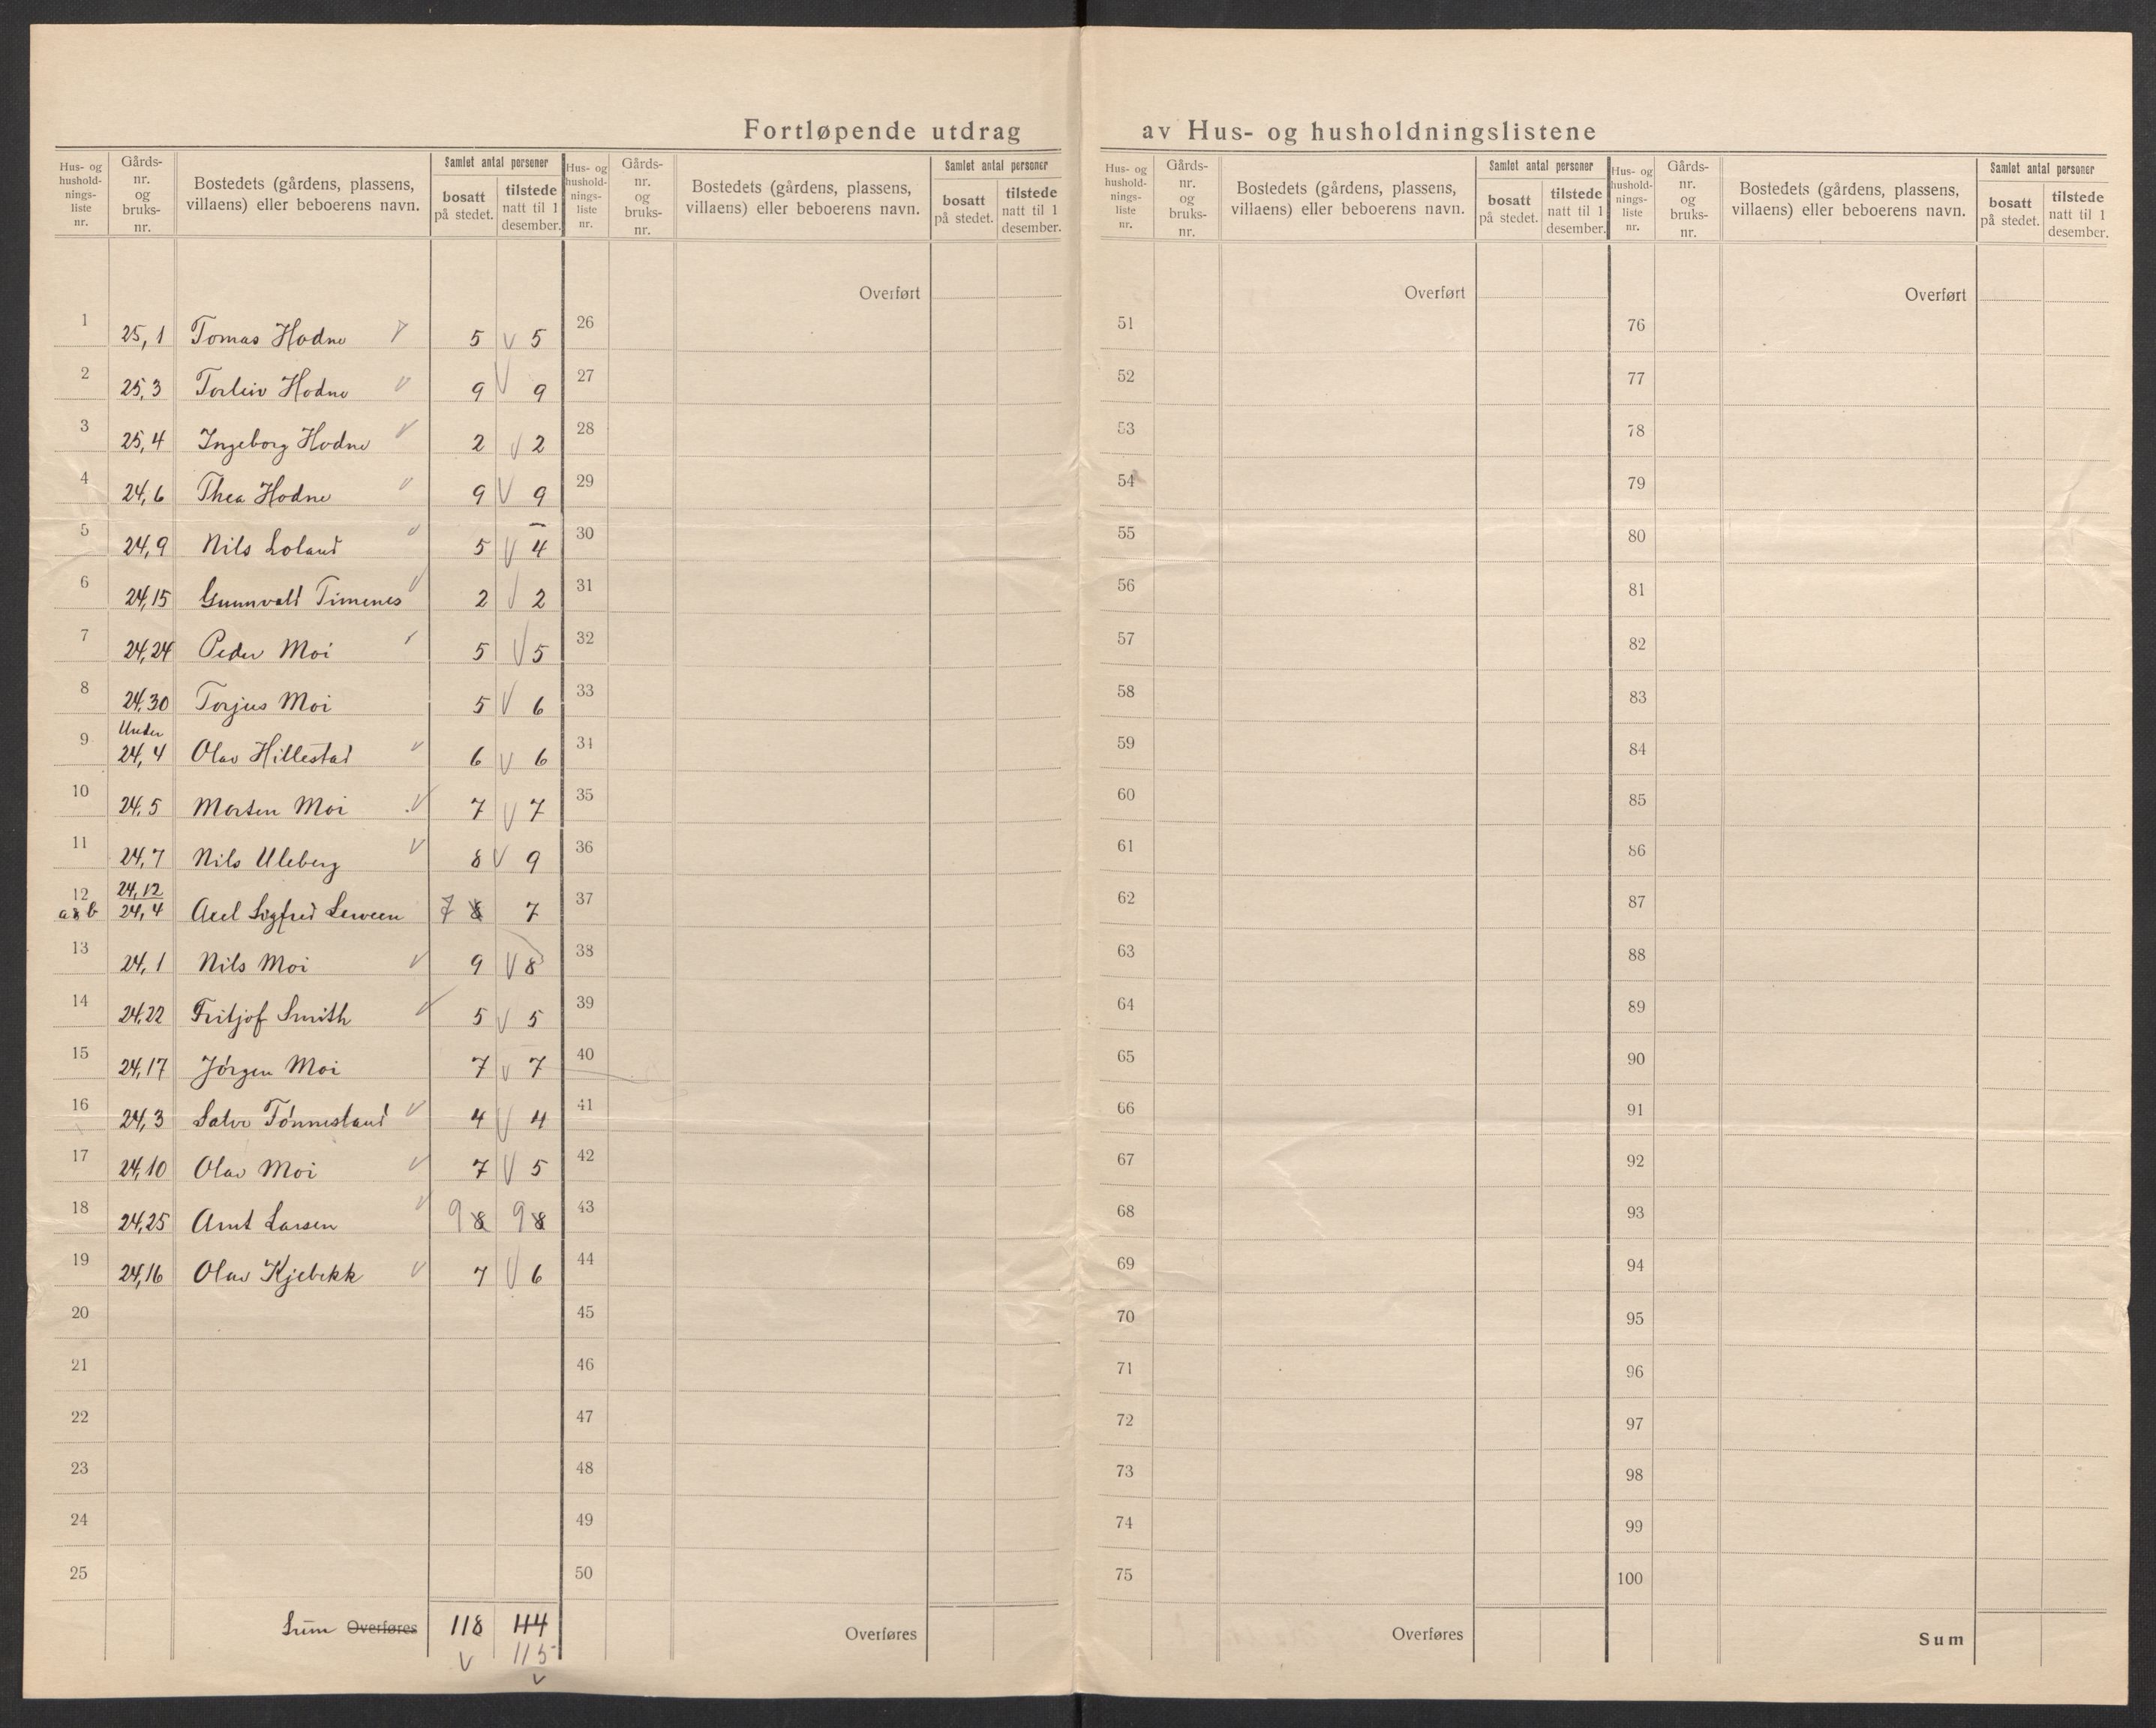 Fortløpende utdrag av Hus- og husholdningslistene
Hus- og husholdnings- liste nr. | Gårds- nr. og bruks- nr. | Bostedets (gårdens, plassens, villaens) eller beboerens navn. | Samlet antal personer | bosatt på stedet. | tilstede natt til 1 desember.
1 25,1 Tomas Hodne 5 v 5
2 25,3 Torleiv Hodne v 9 v 9
3 25,4 Ingeborg Hodne v 2 v 2
4 24,6 Thea Hodne v 9 v 9
5 24,9 Nils Loland v 5 v 4
6 24,15 Gunnvald Timenes v 2 v 2
7 24,24 Peder Moi v 5 v 5
8 24,30 Torjus Moi 5 v 6
9 Under 24,4 Olav Hillestad v 6 v 6
10 24,5 Morten Moi v 7 v 7
11 24,7 Nils Uleberg v 8 v 9
12 a & b 24,12 24,4 Axel Sigfred 7 8 7
13 24,1 Nils Moi v 9 v 8
14 24,22 Fritjof Smith v 5 v 5
15 24,17 Jörgen Moi 7 v 7
16 24,3 Salve Tönnesland v 4 v 4
17 24,10 Olav Moi v 7 v 5
18 24,25 Arnt Larsen v 9 8 9 8
19 24,16 Olav Kjebekk v 7 v 6
20
21
22
23
24
25
Sum Overføres 118 114
v 115
v
Hus- og husholdnings- liste nr. | Gårds- nr. og bruks- nr. | Bostedets (gårdens, plassens, villaens) eller beboerens navn. | Samlet antal personer | bosatt på stedet. | tilstede natt til 1 desember.
Overført
26
27
28
29
30
31
32
33
34
35
36
37
38
39
40
41
42
43
44
45
46
47
48
49
50
Overføres
Hus- og husholdnings- liste nr. | Gårds- nr. og bruks- nr. | Bostedets (gårdens, plassens, villaens) eller beboerens navn. | Samlet antal personer | bosatt på stedet. | tilstede natt til 1 desember.
Overført
51
52
53
54
55
56
57
58
59
60
61
62
63
64
65
66
67
68
69
70
71
72
73
74
75
Overføres
Hus- og husholdnings- liste nr. | Gårds- nr. og bruks- nr. | Bostedets (gårdens, plassens, villaens) eller beboerens navn. | Samlet antal personer | bosatt på stedet. | tilstede natt til 1 desember.
Overført
76
77
78
79
80
81
82
83
84
85
86
87
88
89
90
91
92
93
94
95
96
97
98
99
100
Sum